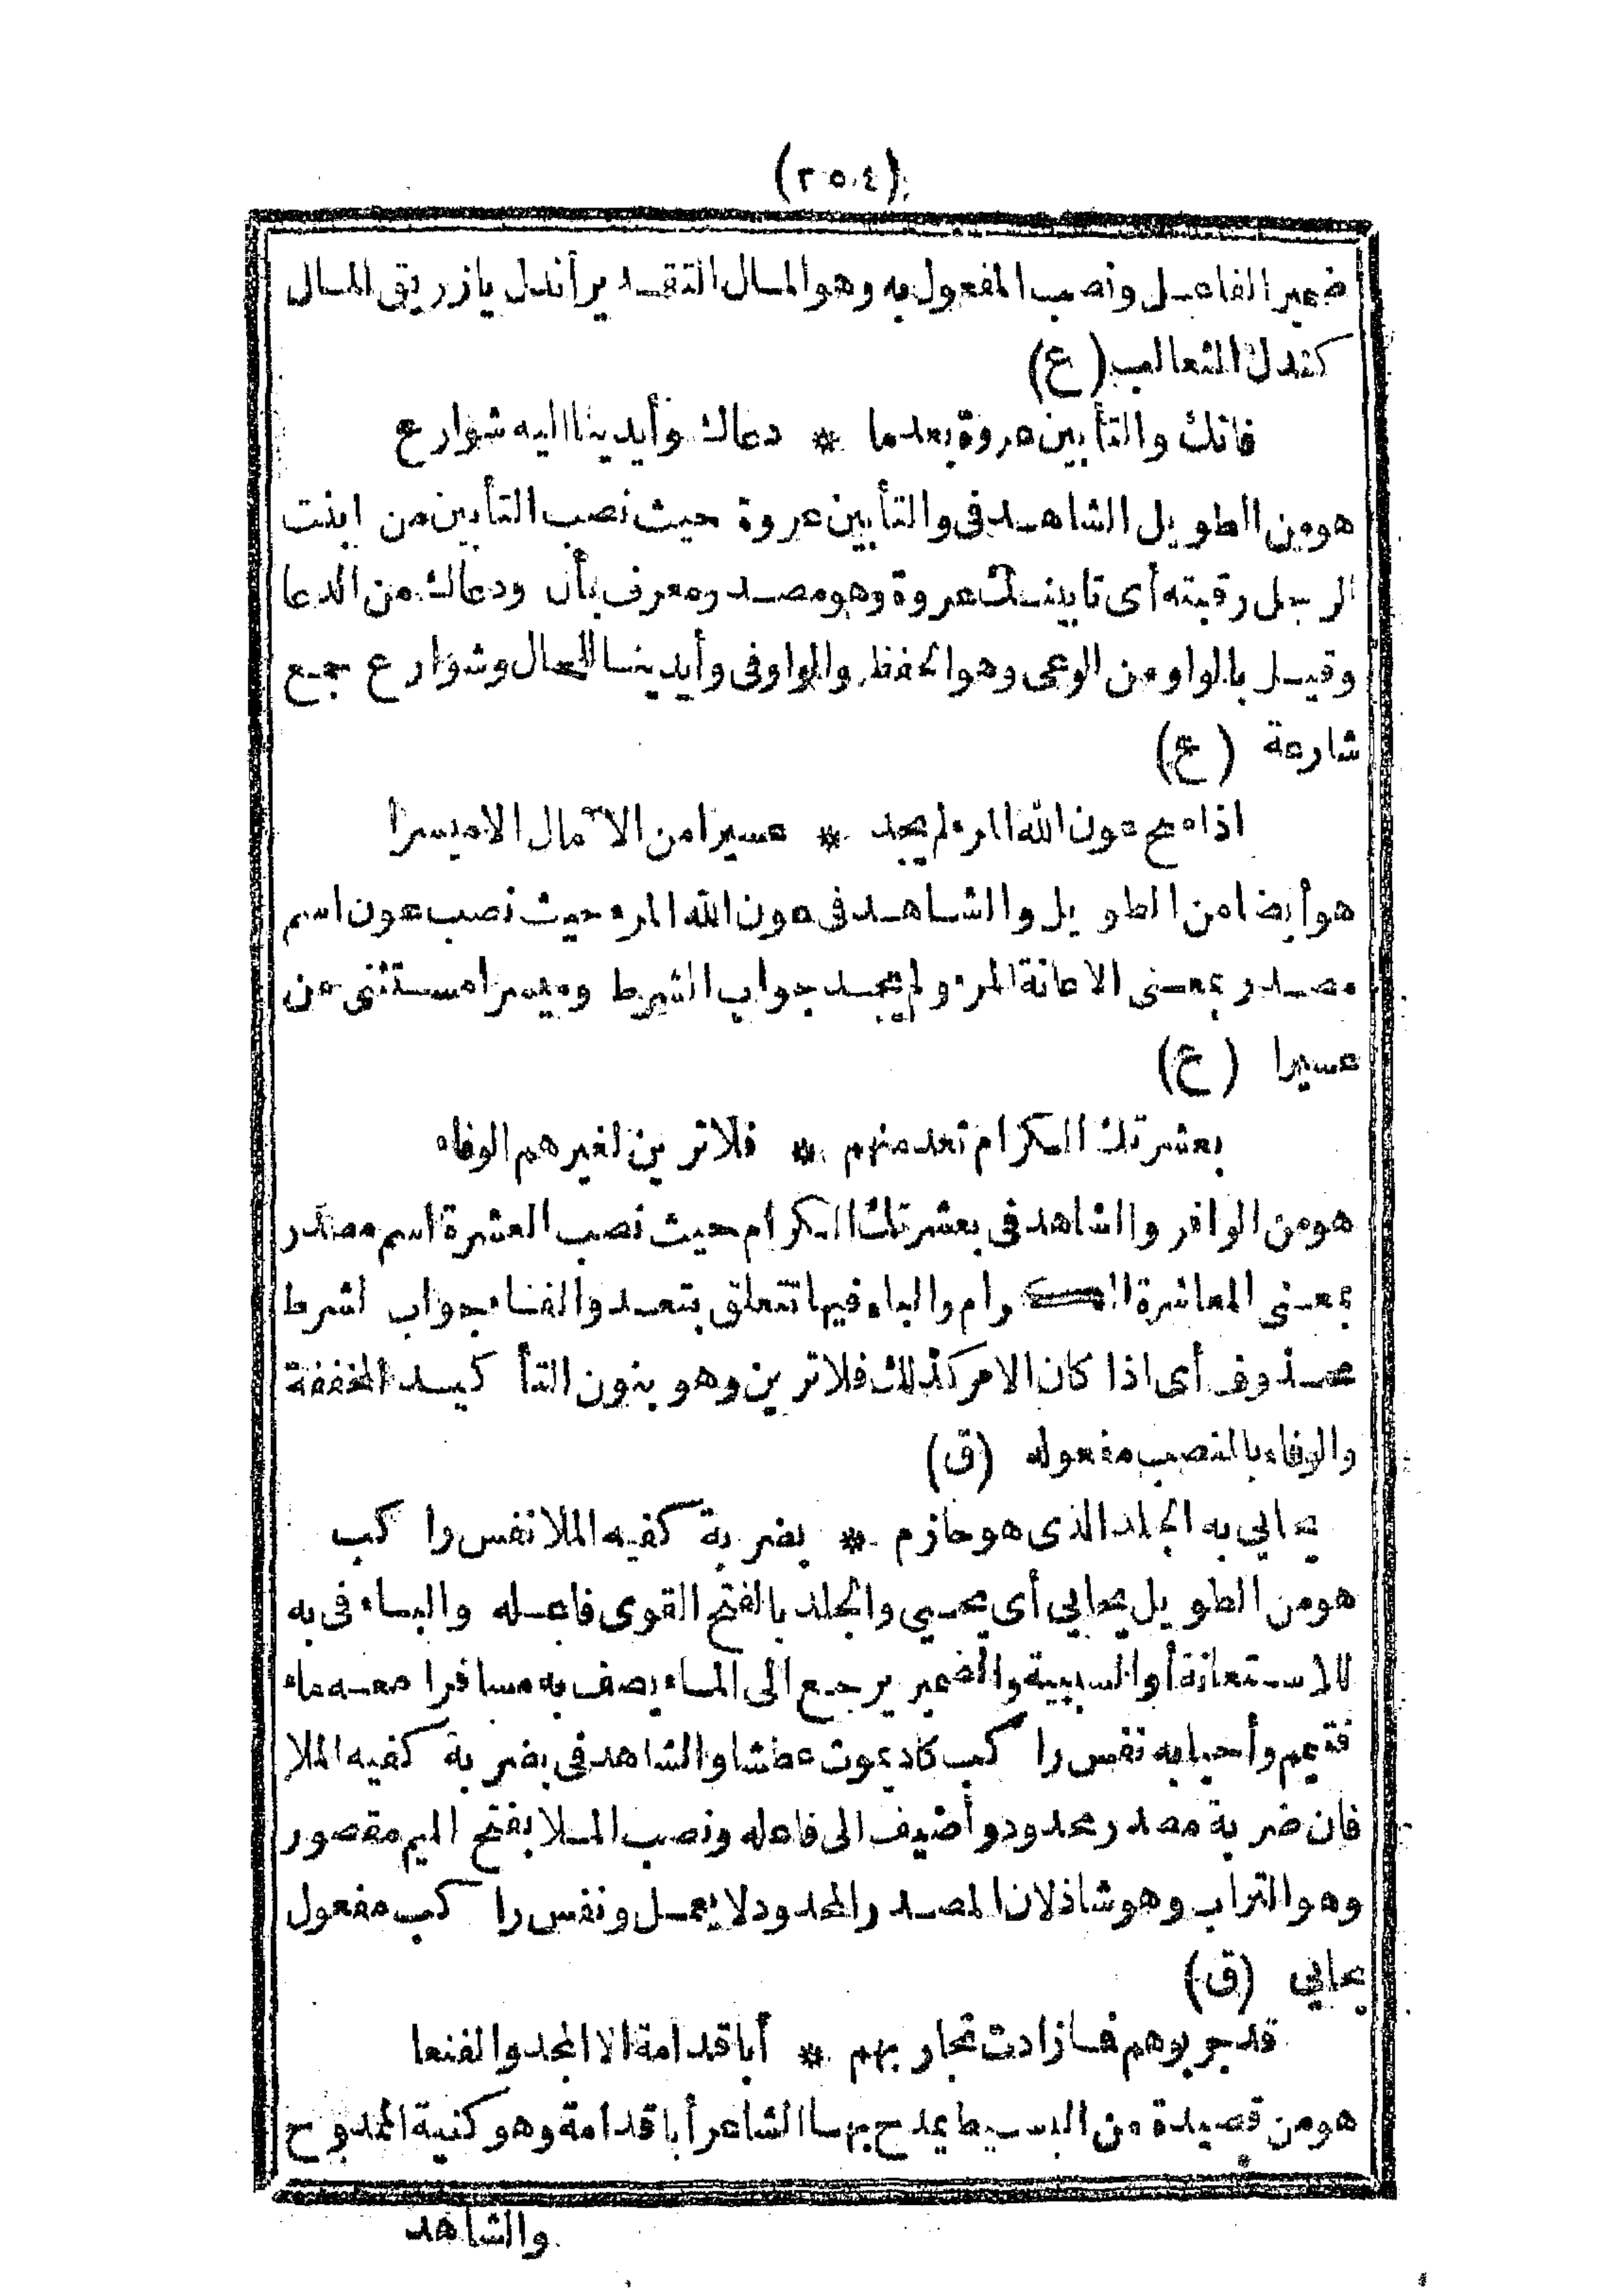 (٢٥٤)
ضمير الفاعل ونصب المفعول به وهو المال التقدير أندل يازريق المال
كندل الثعالب (ع)
فانك والتأبين عروة بعدما * دعاك وأيدينا اليه شوارع
هو من الطويل الشاهد فى والتأبين عروة حيث نصب التأبين من ابنت
الرجل رقبته أى تابينك عروة وهو مصدر معرف بأل ودعاك من الدعا
وقيل بالواو من الوعى وهو الحفظ والواو فى وأيدينا للحال وشوارع جمع
شارعة (ع)
اذا صح عون الله المرء لم يجد * عسيرا من الآمال الا ميسرا
هو أيضا من الطويل والشاهد فى عون الله المرء حيث نصب عون اسم
مصدر بمعنى الاعانة المرء ولم يجد جواب الشرط وميسرا مستثنى عن
عسيرا (ع)
بعشرتك الكرام تعد منهم * فلا ترين لغيرهم الوفاء
هو من الوافر والشاهد فى بعشرتك الكرام حيث نصب العشرة اسم مصدر
بمعنى المعاشرة الكرام والباء فيها تتعلق بتعد والفاء جواب لشرط
محذوف أى اذا كان الامر كذلك فلا ترين وهو بنون التأكيد المخففة
والوفاء بالنصب مفعوله (ق)
يحايي به الجلد الذى هو حازم * بضربة كفيه الملا نفس راكب
هو من الطويل يحايي أى يحيي والجلد بالفتح القوى فاعله والباء فى به
للاستعانة أو السببية والضمير يرجع الى الماء يصف به مسافرا معه ماء
فتيمم وأحيا به نفس راكب كاد يموت عطشا والشاهد فى بضربة كفيه الملا
فان ضربة مصدر محدود وأضيف الى فاعله ونصب الملا بفتح الميم مقصور
وهو التراب وهو شاذ لان المصدر المحدود لا يعمل ونفس راكب مفعول
يحايي (ق)
قد جربوهم فما زادت تجاربهم * أبا قدامة الا المجد والفنعا
هو من قصيدة من البسيط يمدح بها الشاعر أبا قدامة وهو كنية الممدوح
والشاهد